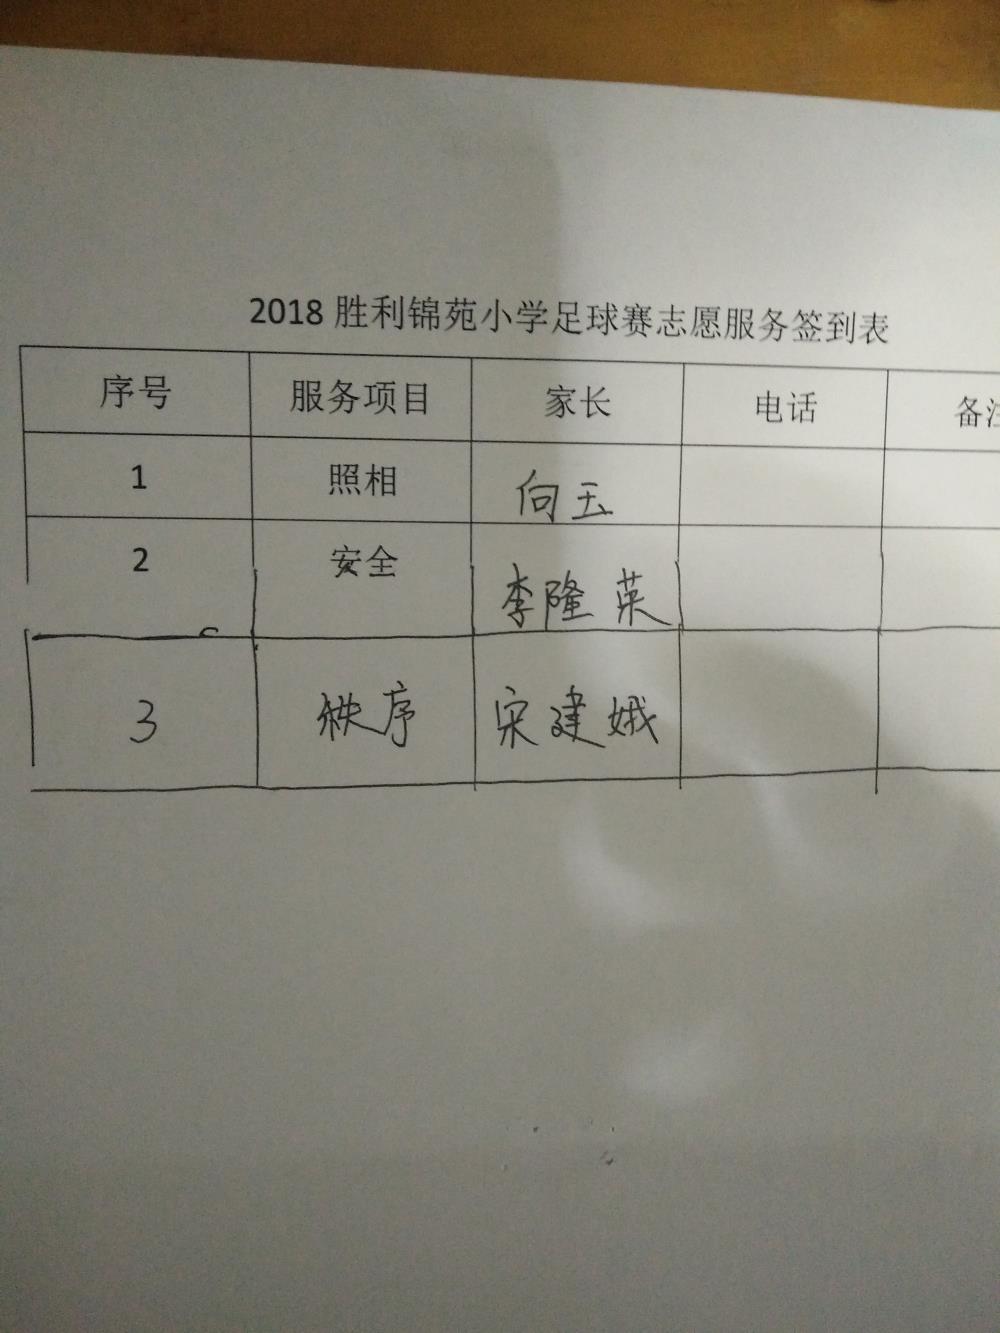 2018 胜利锦苑小学足球赛志愿服务签到表
序号 服务项目 家长 电话 备注
1 照相 向玉
2 安全 李隆英
3 秩序 宋建娥